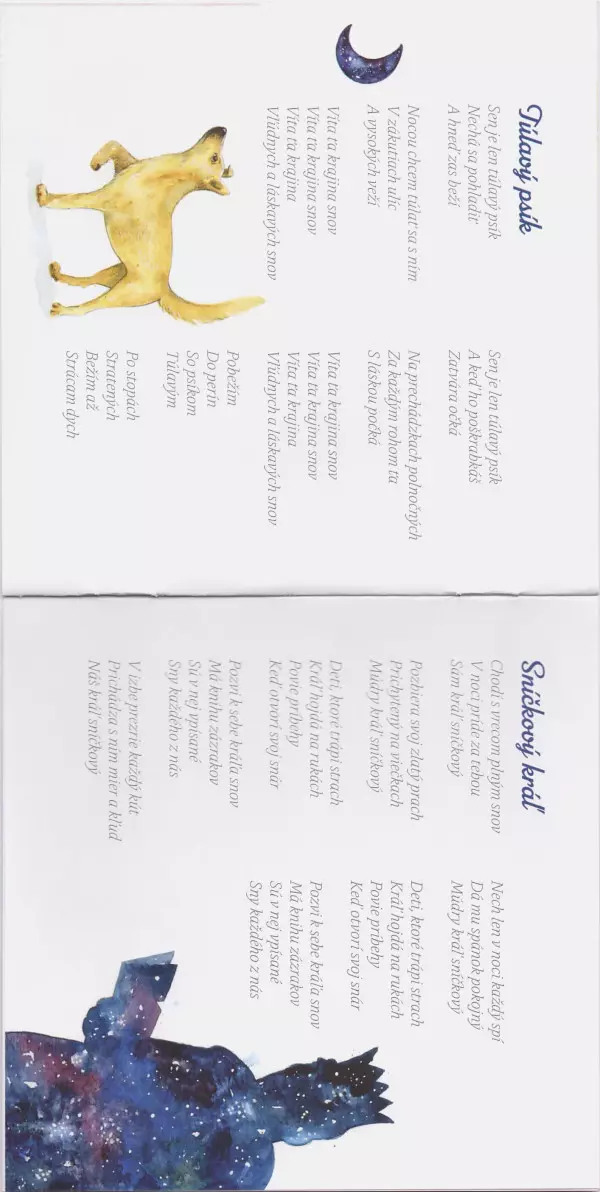 Túlavý psík
Sen je len túlavý psík
Nechá sa pohladiť
A hneď zas beží
Nocou chcem túlať sa s ním
V zákutiach ulíc
A vysokých veží
Víta ťa krajina snov
Víta ťa krajina snov
Víta ťa krajina
Vľúdnych a láskavých snov
Sen je len túlavý psík
A keď ho poškrabkáš
Zatvára očká
Na prechádzkach polnočných
Za každým rohom ťa
S láskou počká
Víta ťa krajina snov
Víta ťa krajina snov
Víta ťa krajina
Vľúdnych a láskavých snov
Pobežím
Do perín
So psíkom
Túlavým
Po stopách
Stratených
Bežím až
Strácam dych
Sníčkový kráľ
Chodí s vrecom plným snov
V noci príde za tebou
Sám kráľ sníčkový
Pozbiera svoj zlatý prach
Prichytený na viečkach
Múdry kráľ sníčkový
Deti, ktoré trápi strach
Kráľ hojdá na rukách
Povie príbehy
Keď otvorí svoj snár
Pozvi k sebe kráľa snov
Má knihu zázrakov
Sú v nej vpísané
Sny každého z nás
V izbe prezrie každý kút
Prichádza s ním mier a kľud
Náš kráľ sníčkový
Nech len v noci každý spí
Dá mu spánok pokojný
Múdry kráľ sníčkový
Deti, ktoré trápi strach
Kráľ hojdá na rukách
Povie príbehy
Keď otvorí svoj snár
Pozvi k sebe kráľa snov
Má knihu zázrakov
Sú v nej vpísané
Sny každého z nás